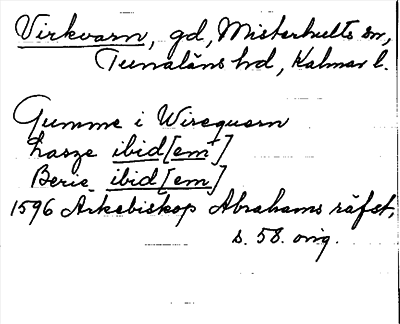 Virkvarn, gd, Misterhults sn,
Tunaläns hd, Kalmar l.
Gumme i Wirequarn
Lasze ibid[em]
Berie ibid[em]
1596 Ärkebiskop Abrahams räfst,
s. 58. orig.